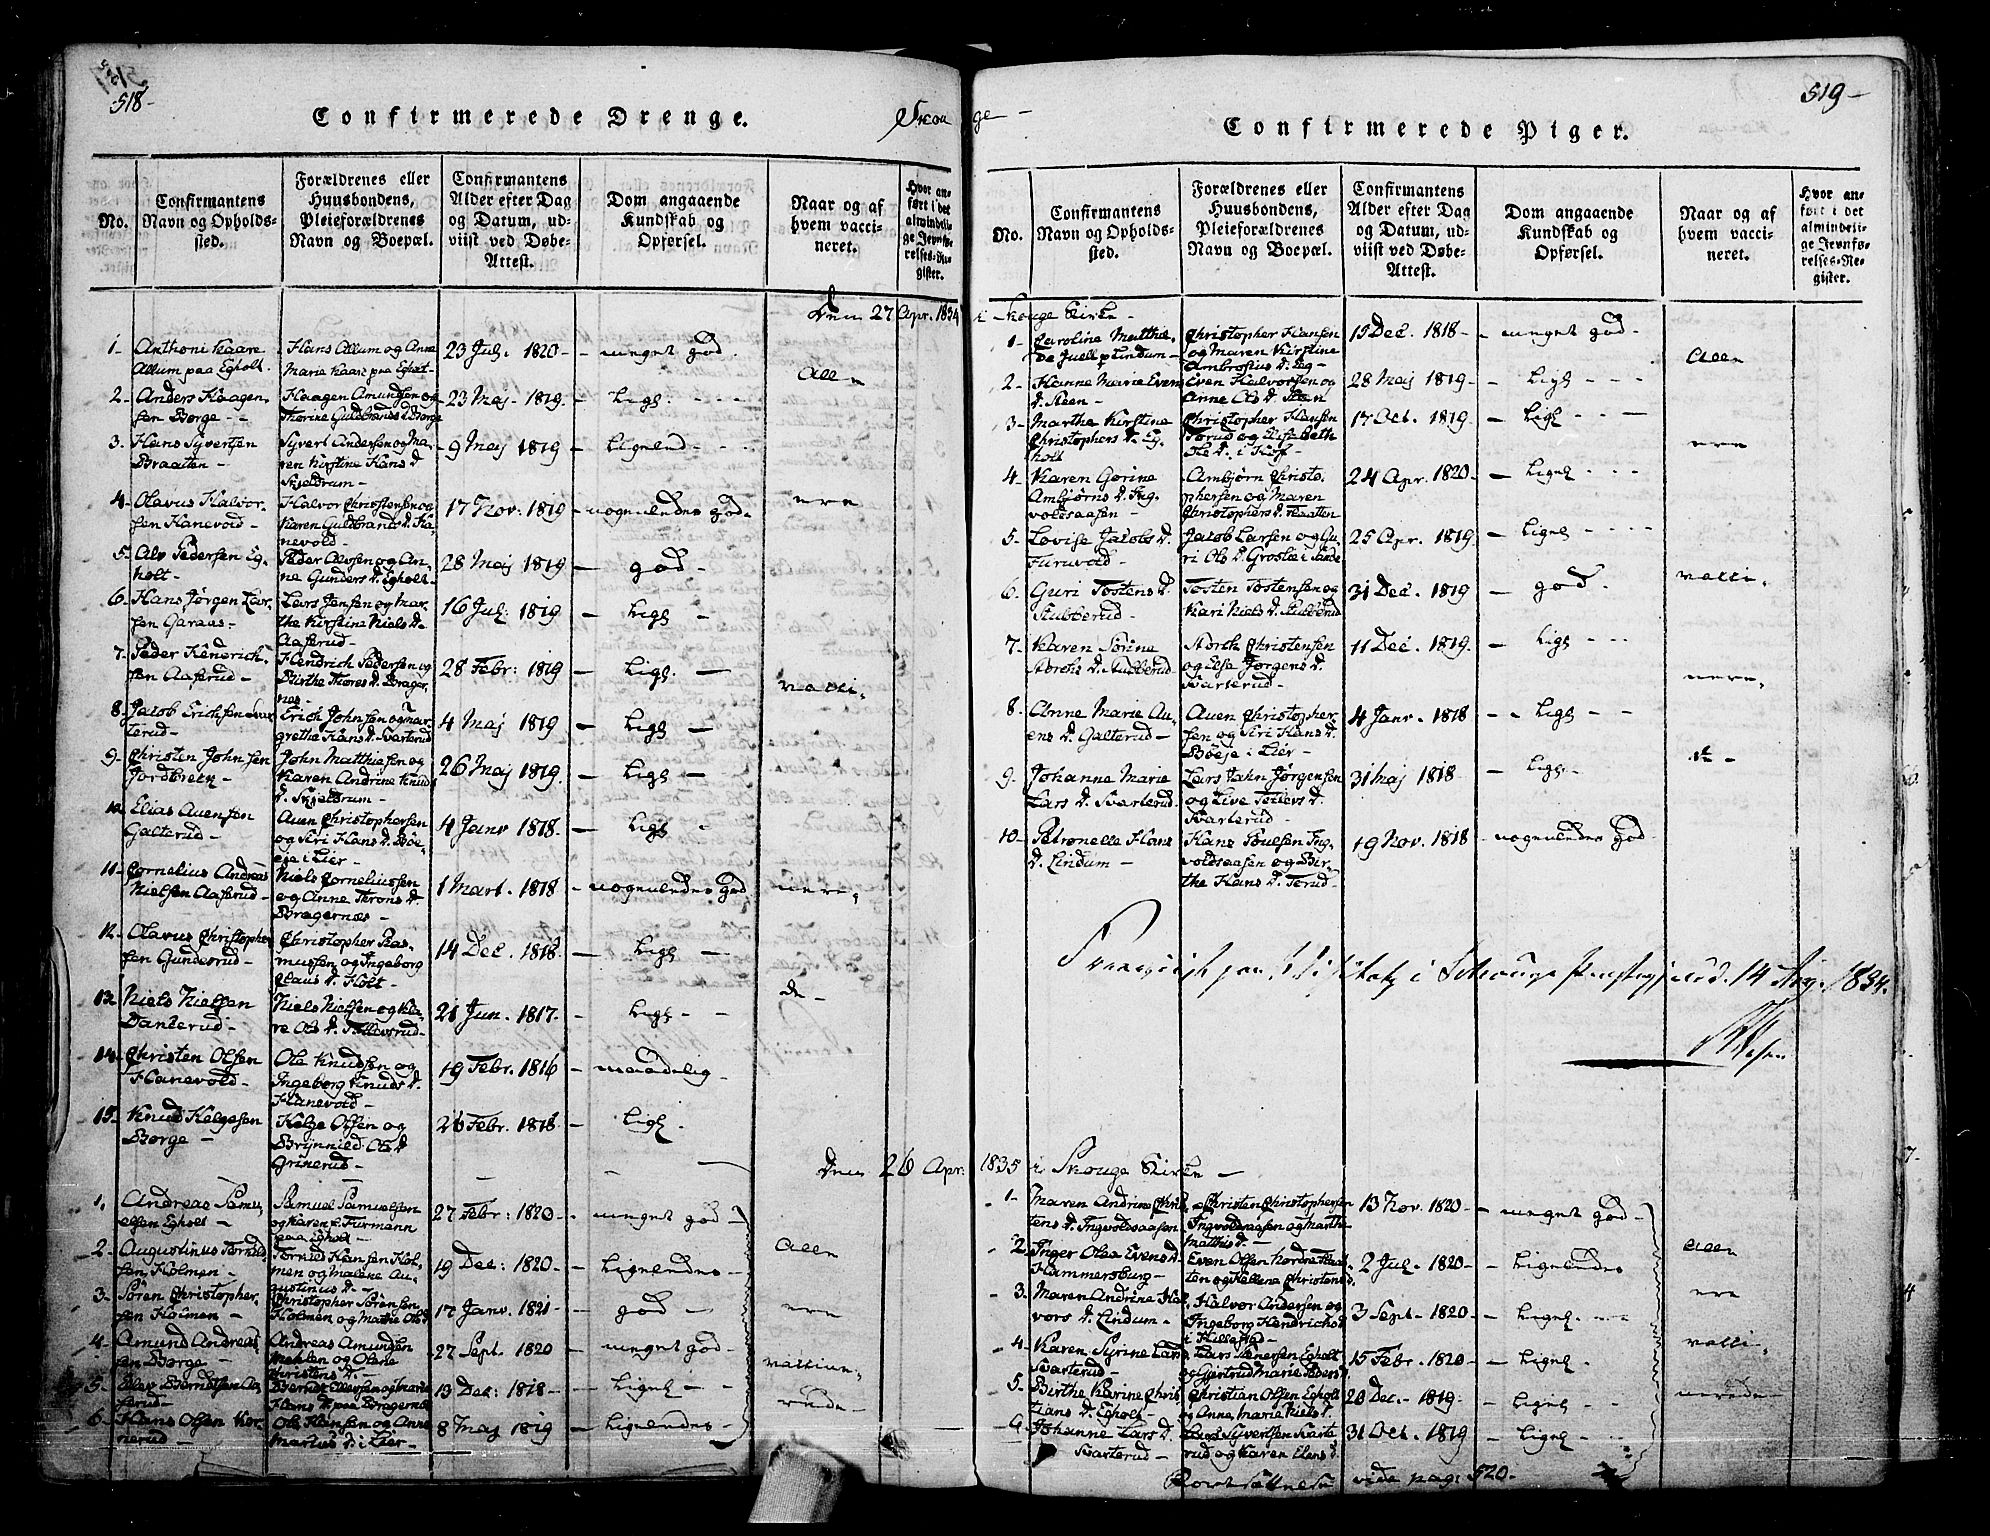 518-
Confirmerede Drenge.
No.
Confirmantens
Navn og Opholds-
sted.
Forældrenes eller
Huusbondens,
Pleieforældrenes
Navn og Boepæl.
Confirmantens
Alder efter Dag
og Datum, ud-
viist ved Døbe-
Attest.
Dom angaaende
Kundskab og
Opførsel.
Naar og af
hvem vacci-
neret.
Hvor an-
ført i det
almindeli-
ge Jevnfø-
relses-Re-
gister.
Den 27 Apr. 1834
1- Anthoni Kaare
Allum paa Egholt.
Hans Allum og Anne
Marie Kaare paa Egholt-
23 Jul: 1820-
meget god.
Alle
2- Anders Haagen-
sen Borge -
Haagen Amundsen og
Thorine Guldbrands d. Borge
23 Maj- 1819.
ligl.
3. Hans Syversen
Braaten -
Syvert Andersen og Ma-
ren Kirstine Hans d.
Skjeldrum-
9 Maj 1819
lignend
4- Olavus Halvor-
sen Hanevold-
Halvor Christensen og
Karen Guldbrands d. Ha-
nevold-
17 Nov: 1819
nogenledes god
ere
5- Alv Pedersen Eg-
holt-
Peder Alvsen og An-
ne Gunders d. Egholt-
28 Maj 1819
god-
6- Hans Jørgen Lar-
sen Garaas-
Lars Jensen og Mar-
the Kirstine Niels d.
Aaserud-
16 Jul: 1819
ligl
7- Peder Hendrich-
sen Aaserud-
Hendrich Pedersen og
Birthe Thores d. Brager-
nes-
28 Febr: 1819
ligl.
vacci-
8- Jacob Erichsen Svar-
terud-
Erich Johnsen og Mar-
grethe Hans d. Svarterud
4 Maj 1819
ligl
9- Christen Johnsen
Jordbrek-
John Matthiesen og
Karen Andrine Knuds
d. Skjeldrum-
26 Maj 1819.
ligl
10- Elias Auensen
Galterud-
Auen Christophersen
og Siri Hans d. Bøe-
eje i Lier-
4 Janv 1818.
ligl
11- Cornelius Andreas
Nielsen Aaserud-
Niels Corneliussen
og Anne Throns d.
Bragernæs-
1 Mart. 1818
nogenledes god
nere,
12- Olavus Christopher-
sen Gunderud-
Christopher Ras-
mussen og Ingeborg
Claus d. Holt-
14 Dec. 1818
ligl
13- Niels Nielsen
Danserud-
Niels Nielsen og Ka-
re Ols d. Tollevsrud-
21 Jun. 1817.
ligl
de-
14- Christen Olsen
Hanevold-
Ole Knudsen og
Ingeborg Knuds d.
Hanevold-
19 Febr. 1816
maadelig
15- Knud Helgesen
Borge-
Helge Olsen og
Brynnild Ols d
Grinerud-
26 Febr: 1818
ligl.
Den 26 Apr:
1. Andreas Samu-
elsen Egholt-
Samuel Samuelsen
og Karen f. Furmann
paa Egholt-
27 Febr: 1820-
meget god-
2- Augustinus Tornæs-
sen Holmen-
Tornæs Hansen Hol-
men og Malene Au-
gustinus d.-
19 Dec: 1820-
lignendes-
Alle
3- Søren Christopher-
sen Holmen-
Christopher Sørensen
Holmen og Mathe Ols d
17 Janv. 1821-
god-
ere
4- Amund Andreas-
sen Borge-
Andreas Amundsen
Mehlen og Olene
Christens d.-
27 Sept. 1820
meget god-
5- Alv Berntsen Aa-
serud-
Bernt Allersen og Marie
Hans d. paa Bragernæs
13 Dec: 1818-
lignel
6- Hans Olsen Kor-
nerud-
Ole Hansen og Anne
Marius d. i Lier-
8 Maj 1819
lignendes-
Skou
ge-
519-
Confirmerede Piger.
No.
Confirmantens
Navn og Opholds-
sted.
Forældrenes eller
Huusbondens,
Pleieforældrenes
Navn og Boepæl.
Confirmantens
Alder efter Dag
og Datum, ud-
viist ved Døbe-
Attest.
Dom angaaende
Kundskab og
Opførsel.
Naar og af
hvem vacci-
neret.
Hvor an-
ført i det
almindeli-
ge Jevnfø-
relses-Re-
gister.
i Skouge Kirke-
1- Caroline Matthil-
de Juell p Lindum-
Christopher Hansen
og Maren Kirstine
Ambrosius d. Leg-
15 Dec. 1818-
meget god-
Alle
2- Hanne Marie Evens
d. Steen-
Even Halvorsen og
Anne Ols d. Steen
28 Maj 1819-
ligl
3- Marthe Kirstine
Christophers d. Eg-
holt
Christopher Hansen
Torud og Elisabeth
17 Oct. 1819.
ligl
ere
4- Karen Gorine
Ambjørns d. Ing-
voldsaasen-
Ambjørn Christo-
phersen og Maren
Christophers d. Flaatten
24 Apr. 1820-
lignel
5- Lovise Jacobs d.
Furuvold-
Jacob Larsen og Gu-
ri Ols d. Grosløs i Sande
25 Apr. 1819.
lignel
6- Guri Tostens d.
Stubberud-
Tosten Tostensen og
Kari Niels d. Stubberud
31 Dec. 1819
god.
vacci-
7- Karen Sørine
Storchs d. Stubberud
Storch Christensen
og Else Jørgens d.
Svarterud-
11 Dec. 1819.
ligl
nere-
8- Anne Marie Au-
ens d. Galterud-
Auen Christopher-
sen og Siri Hans d.
Bøeje i Lier-
4 Janv. 1818
ligl
9- Johanne Marie
Lars d. Svarterud.
Lars Jahn Jørgensen
og Live Tollevs d.
Svarterud-
31 Maj 1818-
ligl-
de-
10- Petronelle Hans
d. Lindum-
Hans Poulsen Ing-
voldsaasen og Bir-
the Hans d. Torud-
19 Nov. 1818
nogenledes god
Fremviist paa Visitats i Schouge Præstegjæld. 14 Aug. 1834.
1835 i Skouge Kirke-
1- Maren Andrine Chris-
tens d. Ingvoldsaasen
Christen Christophersen
Ingvoldsaasen og Marthe
Matthis d.
13 Nov. 1820-
meget god-
2. Inger Olea Evens d.
Hammersburg-
Even Olsen Nordre Flaa-
ten og Hellene Christens d.
2 Jul. 1820
lignendes
Alle
3. Maren Andrine Hal-
vors d. Lindum-
Halvor Andersen og
Ingeborg Hendrichs d
i Hillestad-
3 Sept- 1820
lignel.
ere
4- Karen Syrine Lars d
Svarterud-
Lars Steensen Egholt
og Gjertrud Marie Peders d.
15 Febr. 1820-
lignel.
vacci-
5. Birthe Karine Chris-
tians d. Egholt-
Christian Olsen Egholt
og Anne Marie Niels d.
20 Dec. 1819.
lignel
nerede
6- Johanne Lars d.
Svarterud-
Lars Syvertsen Svarte-
rud og Karen Elens d.
31 Oct. 1819
lignel
Fortsættelse vide pag: 520-